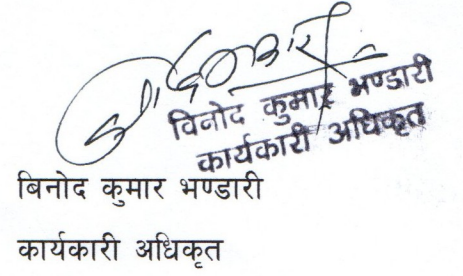 विनोद कुमार भण्डारी
कार्यकारी अधिकृत
बिनोद कुमार भण्डारी
कार्यकारी अधिकृत